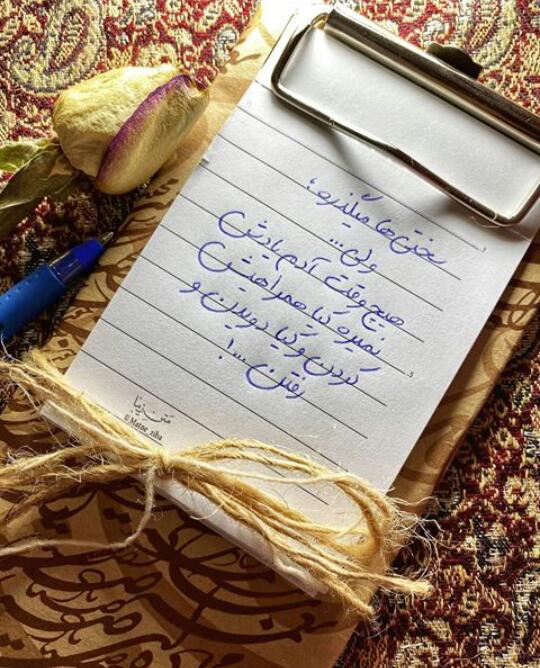 سختی ها میگذره؛
ولی...
هیچ وقت آدم یادش
نمیره کیا همراهیش
کردن و کیا دویدن و
رفتن...!
متن زیبا
@Matne_ziba